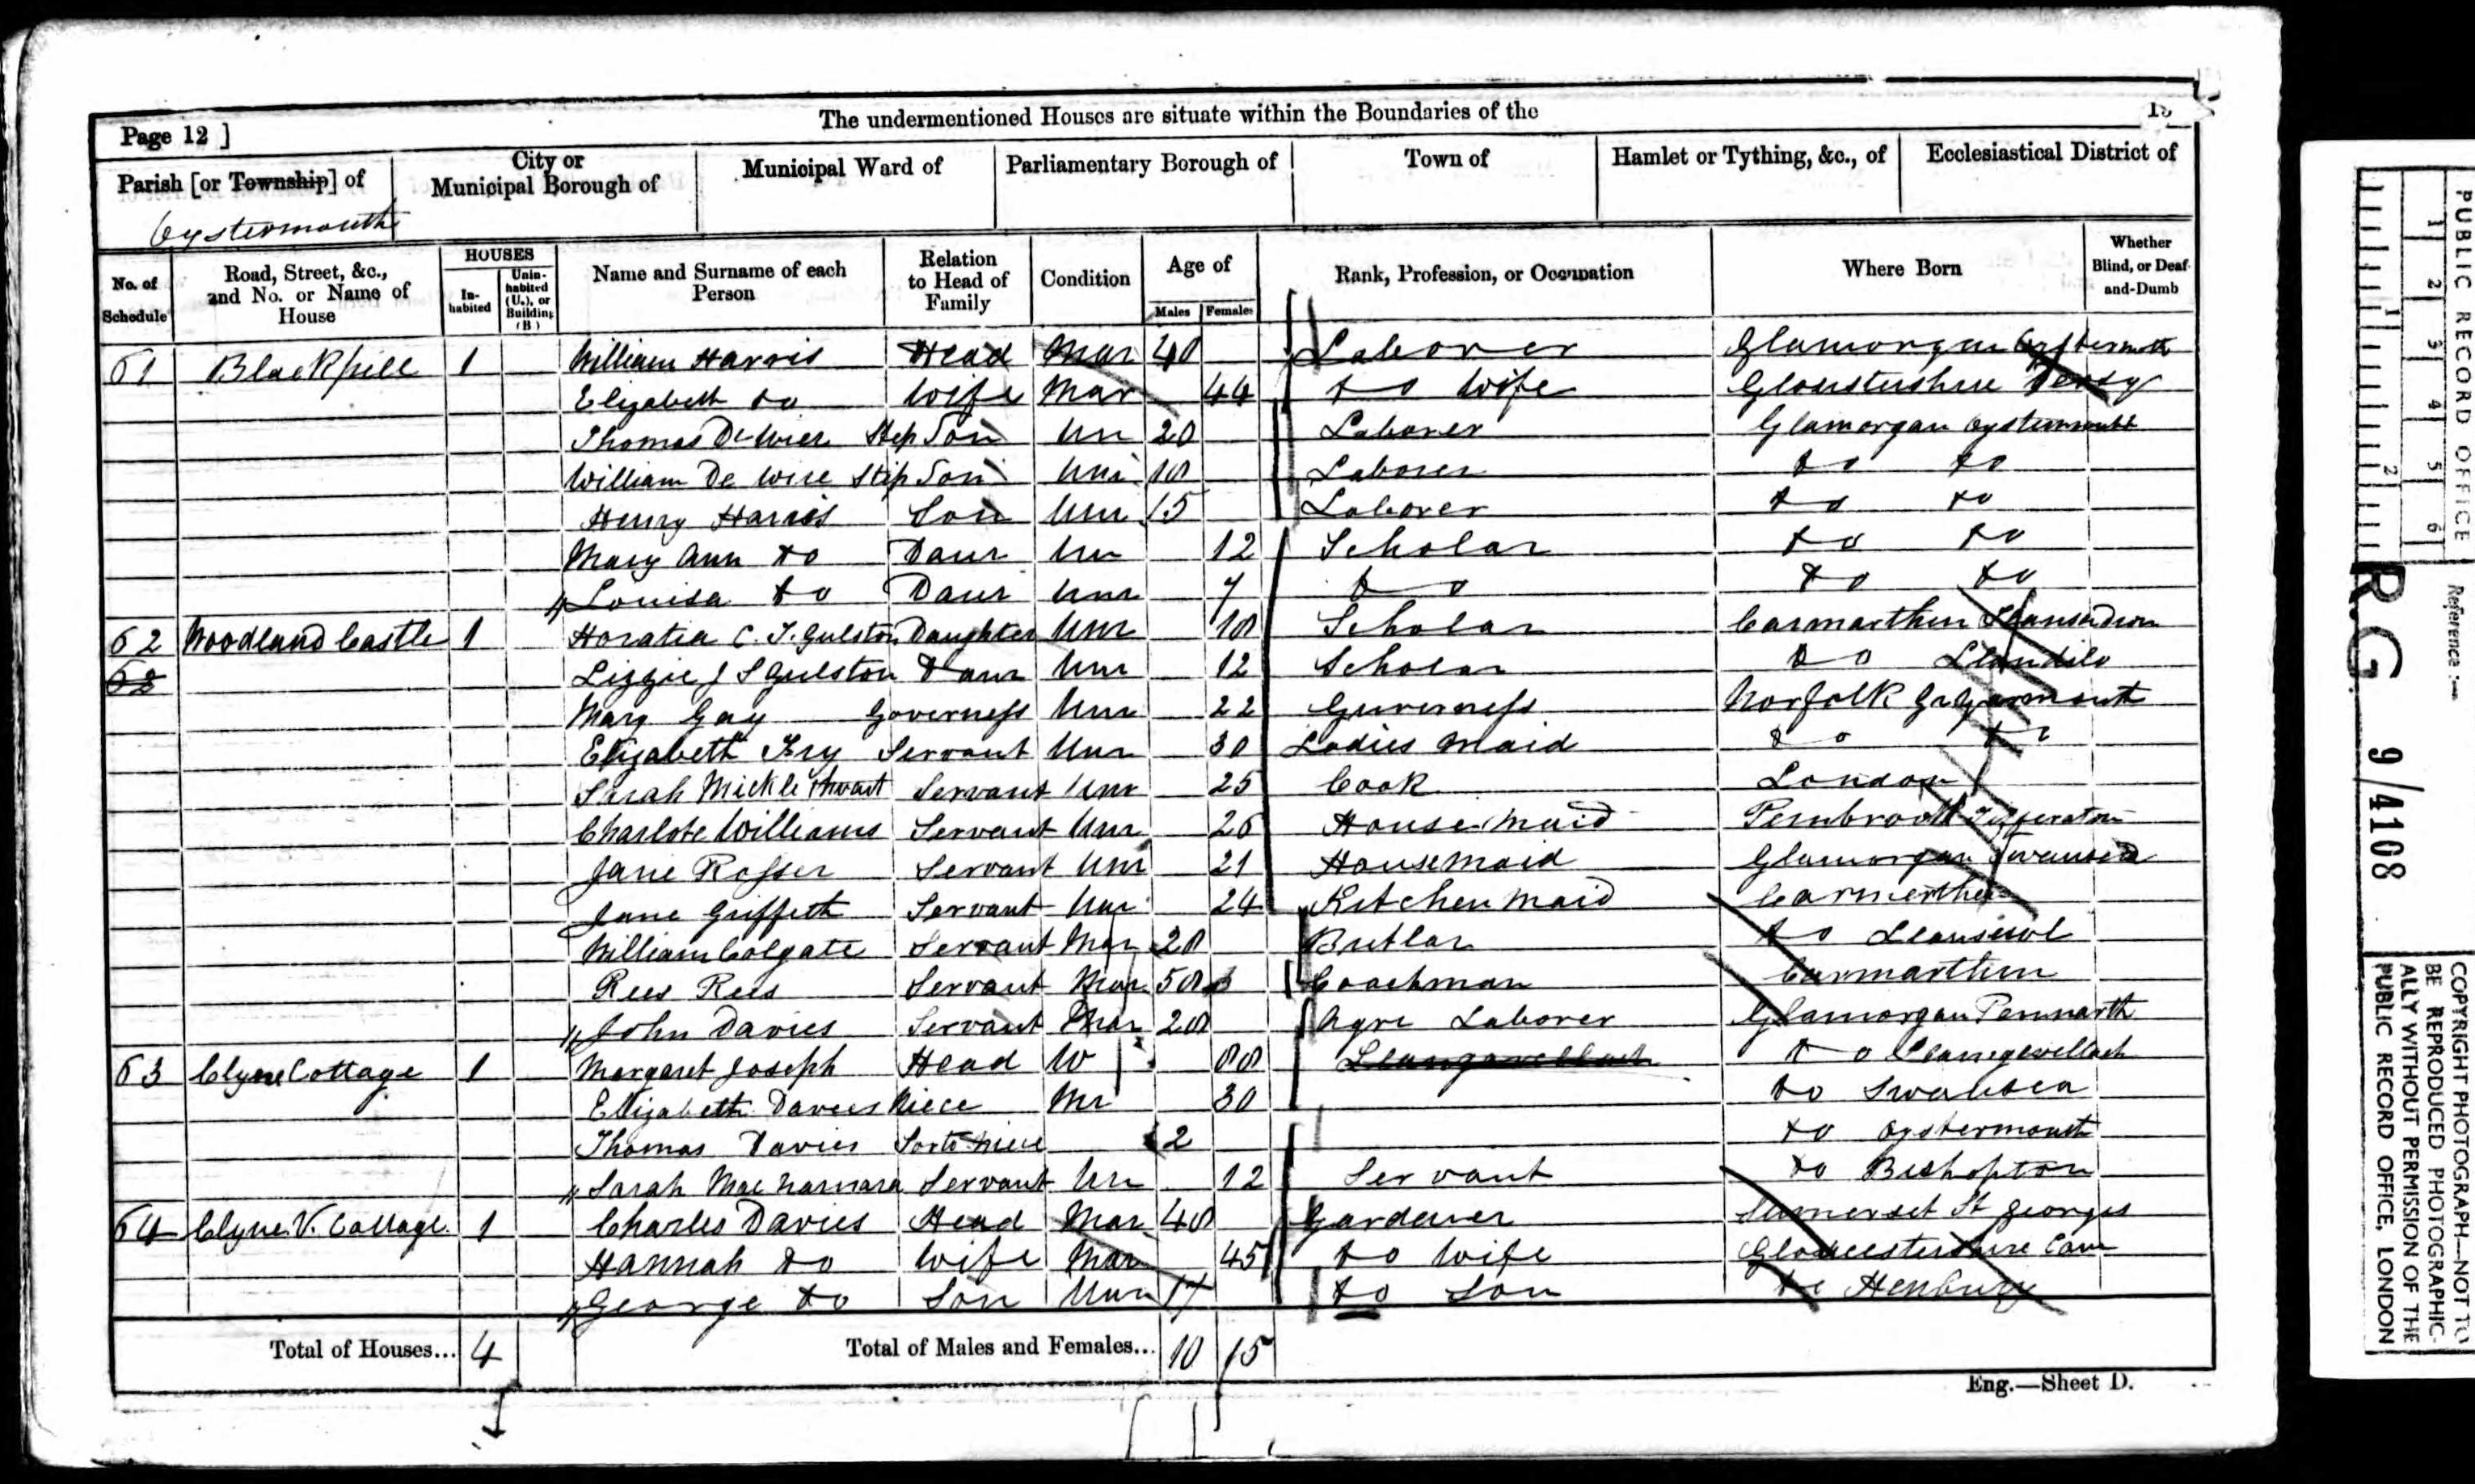 The undermentioned Houses are situate within the Boundaries of the
Page 12 ]
Parish [or Township] of
City or Municipal Borough of
Municipal Ward of
Parliamentary Borough of
Town of
Hamlet or Tything, &c., of
Ecclesiastical District of
Oystermouth
No. of Schedule
Road, Street, &c., and No. or Name of House
HOUSES
In-habited
Unin-habited (U.), or Building (B)
Name and Surname of each Person
Relation to Head of Family
Condition
Age of
Males
Females
Rank, Profession, or Occupation
Where Born
Whether Blind, or Deaf-and-Dumb
61 Blackpill 1 William Harris Head Mar 40 Laborer Glamorgan Oystermouth
Elizabeth Do Wife Mar 44 Do Wife Gloustershire
Thomas De Wier Step Son Un 20 Laborer Glamorgan Oystermouth
William De Wire Step Son Un 18 Laborer Do Do
Henry Harris Son Unn 15 Laborer Do Do
Mary Ann Do Daur Un 12 Scholar Do Do
Louisa Do Daur Unn 7 Do Do Do
62 Woodland Castle 1 Horatia C. J. Gulston Daughter Unn 18 Scholar Carmarthen Llansadwrn
62 Lizzie J S Gulston Daur Unn 12 Scholar Do Llandilo
Mary Gay Governess Unn 22 Governess Norfolk Gr Yarmouth
Elizabeth Fry Servant Unn 30 Ladies Maid Do Do
Sarah Micklethwait Servant Unn 25 Cook London
Charlote Williams Servant Unn 26 House Maid Pembrook
Jane Rosser Servant Unn 21 House Maid Glamorgan Swansea
Jane Griffith Servant Unn 24 Kitchen Maid Carmerthen
William Colgate Servant Mar 28 Butlar Do Llansawl
Rees Rees Servant Mar 58 Coachman Carmarthen
John Davies Servant Mar 28 Agre Laborer Glamorgan Pennarth
63 Clyne Cottage 1 Margaret Joseph Head W 88 Llangavellach Do Llangevellach
Elizabeth Davies Niece Mr 30 Do Swansea
Thomas Davies Son to Niece 2 Do Oystermouth
Sarah Mac Namara Servant Un 12 Servant Do Bishopton
64 Clyne V. Cottage 1 Charles Davies Head Mar 48 Gardener Somerset St Georges
Hannah Do Wife Mar 45 Do Wife Gloucestershire Cam
George Do Son Unn 17 Do Son Do Henbury
Total of Houses... 4
Total of Males and Females... 10 15
Eng.—Sheet D.
PUBLIC RECORD OFFICE
1 2 3 4 5 6
1 2
Reference :—
R.G. 9/4108
COPYRIGHT PHOTOGRAPH—NOT TO
BE REPRODUCED PHOTOGRAPHIC-
ALLY WITHOUT PERMISSION OF THE
PUBLIC RECORD OFFICE, LONDON